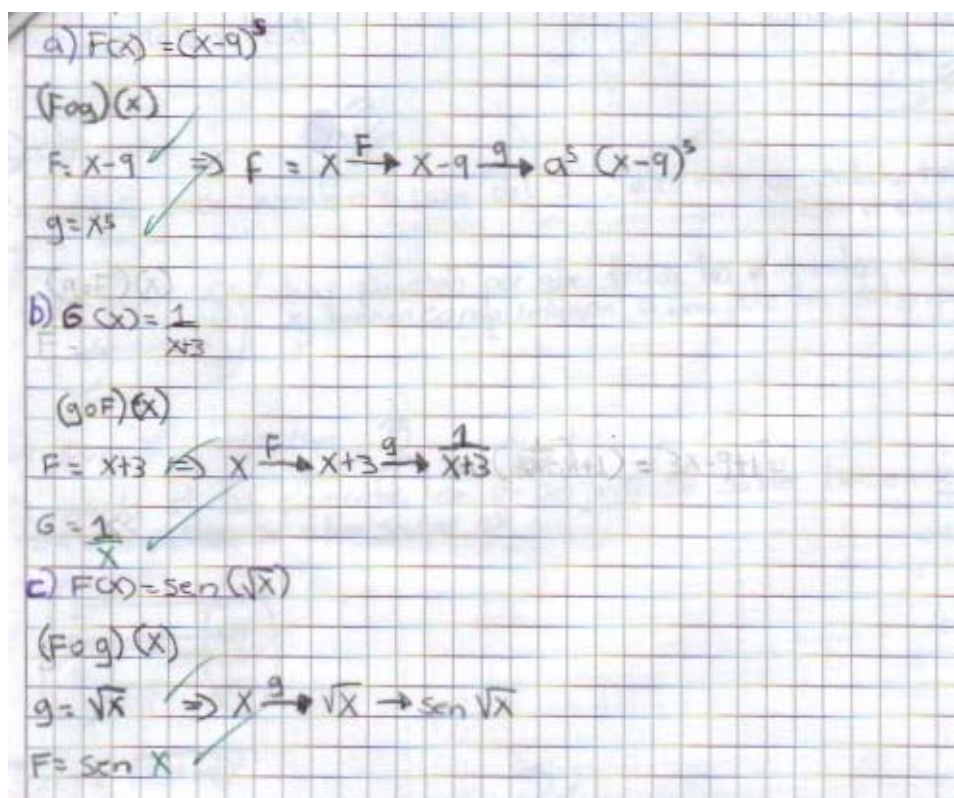 a) F(x) = (x-9)⁵
(Fog)(x)
F: x-9 ⇒ f = x F→ x-9 g→ a⁵ (x-9)⁵
g = x⁵
b) G(x) = 1/x+3
(goF)(x)
F = x+3 ⇒ x F→ x+3 g→ 1/x+3
G = 1/x
c) F(x) = sen(√x)
(Fog)(x)
g = √x ⇒ x g→ √x → sen √x
F = sen x